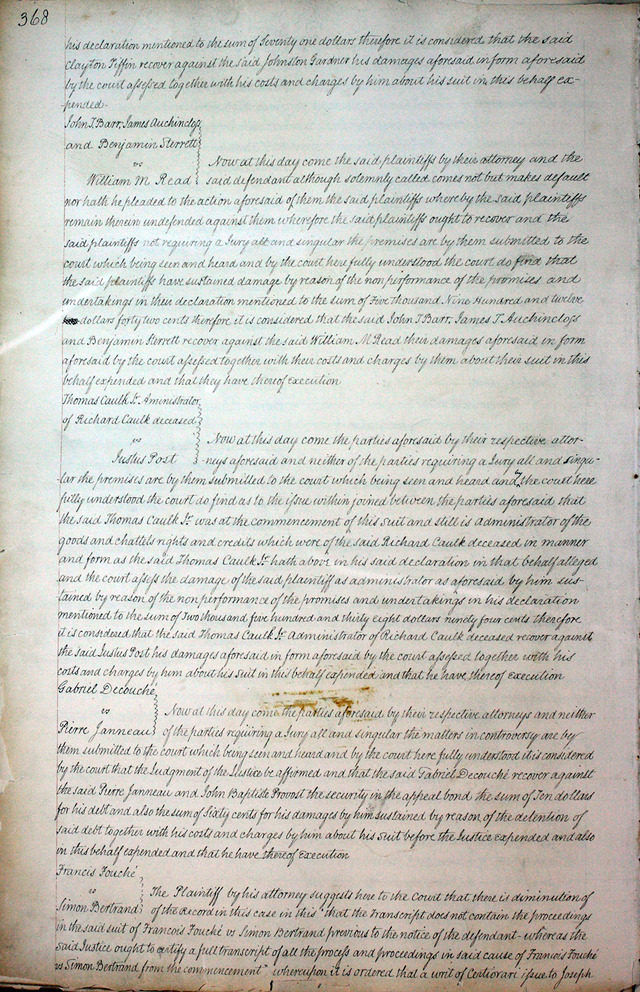 368
his declaration mentioned to the sum of Seventy one dollars therefore it is considered that the said
Clayton Tiffin recover against the said Johnston Gardner his damages aforesaid in form aforesaid
by the court assessed together with his costs and charges by him about his suit in this behalf ex-
pended.
John T. Barr, James Auchincloss
and Benjamin Sterrett
vs
Now at this day come the said plaintiffs by their attorney and the
William M Read
said defendant although solemnly called comes not but makes default
nor hath he pleaded to the action aforesaid of them the said plaintiffs whereby the said plaintiffs
remain therein undefended against them wherefore the said plaintiffs ought to recover and the
said plaintiffs not requiring a Jury all and singular the premises are by them submitted to the
court which being seen and heard and by the court here fully understood the court do find that
the said plaintiffs have sustained damage by reason of the non performance of the promises and
undertakings in their declaration mentioned to the sum of Five thousand Nine Hundred and twelve
dollars forty two cents therefore it is considered that the said John T Barr, James T. Auchincloss
and Benjamin Sterrett recover against the said William M Read their damages aforesaid in form
aforesaid by the court assessed together with their costs and charges by them about their suit in this
behalf expended and that they have thereof execution
Thomas Caulk Jr. Aministrator
of Richard Caulk deceased
vs
Now at this day come the parties aforesaid by their respective attor-
Justus Post
-neys aforesaid and neither of the parties requiring a Jury all and singu-
lar the premises are by them submitted to the court which being seen and heard and by the court here
fully understood the court do find as to the issue within joined between the parties aforesaid that
the said Thomas Caulk Jr. was at the commencement of this suit and still is administrator of the
goods and chattels rights and credits which were of the said Richard Caulk deceased in manner
and form as the said Thomas Caulk Jr. hath above in his said declaration in that behalf alleged
and the court assess the damage of the said plaintiff as administrator as aforesaid by him sus-
tained by reason of the non performance of the promises and undertakings in his declaration
mentioned to the sum of Two thousand five hundred and thirty eight dollars ninety four cents therefore
it is considered that the said Thomas Caulk Jr. Administrator of Richard Caulk deceased recover against
the said Justus Post his damages aforesaid in form aforesaid by the court assessed together with his
costs and charges by him about his suit in this behalf expended and that he have thereof execution
Gabriel Decouché
vs
Now at this day come the parties aforesaid by their respective attorneys and neither
Pierre Janneau
of the parties requiring a Jury all and singular the matters in controversy are by
them submitted to the court which being seen and heard and by the court here fully understood it is considered
by the court that the Judgment of the Justice be affermed and that the said Gabriel Decouché recover against
the said Pierre Janneau and John Baptiste Provost the security in the appeal bond the sum of Ten dollars
for his debt and also the sum of Sixty cents for his damages by him sustained by reason of the detention of
said debt together with his costs and charges by him about his suit before the Justice expended and also
in this behalf expended and that he have thereof execution
Francis Fouché
vs
The Plaintiff by his attorney suggests here to the Court that there is diminution of
Simon Bertrand
of the Record in this case in this "that the Transcript does not contain the proceedings
in the said suit of Francois Fouché vs Simon Bertrand previous to the notice of the defendant - whereas the
said Justice ought to certify a full transcript of all the process and proceedings in said cause of Francois Fouché
vs Simon Bertrand from the commencement" whereupon it is ordered that a writ of Certiorari issue to Joseph